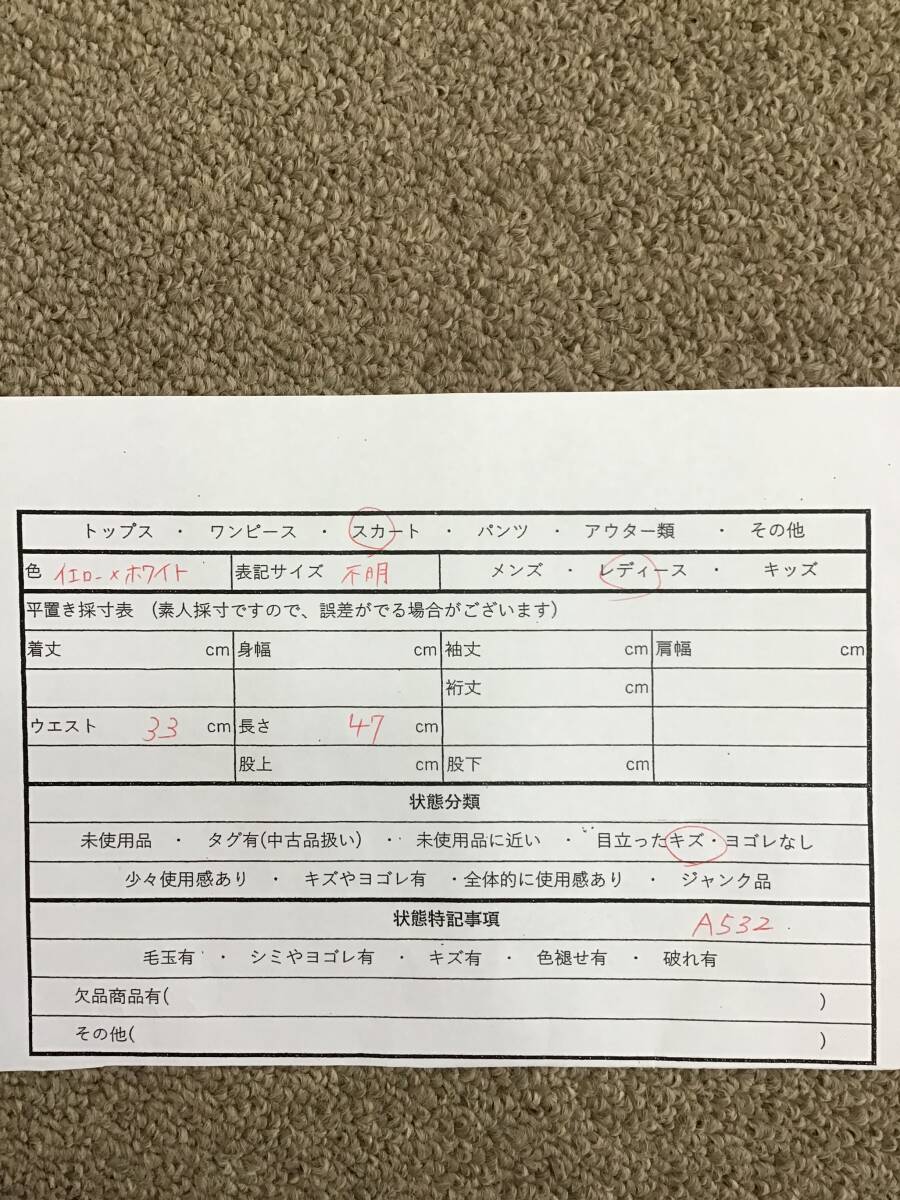 トップス ・ ワンピース ・ スカート ・ パンツ ・ アウター類 ・ その他
色 イエロー×ホワイト 表記サイズ 不明 メンズ ・ レディース ・ キッズ
平置き採寸表 (素人採寸ですので、誤差がでる場合がございます)
着丈 cm 身幅 cm 袖丈 cm 肩幅 cm
裄丈 cm
ウエスト 33 cm 長さ 47 cm
股上 cm 股下 cm
状態分類
未使用品 ・ タグ有(中古品扱い) ・ 未使用品に近い ・ 目立ったキズ・ヨゴレなし
少々使用感あり ・ キズやヨゴレ有 ・全体的に使用感あり ・ ジャンク品
状態特記事項 A532
毛玉有 ・ シミやヨゴレ有 ・ キズ有 ・ 色褪せ有 ・ 破れ有
欠品商品有( )
その他( )